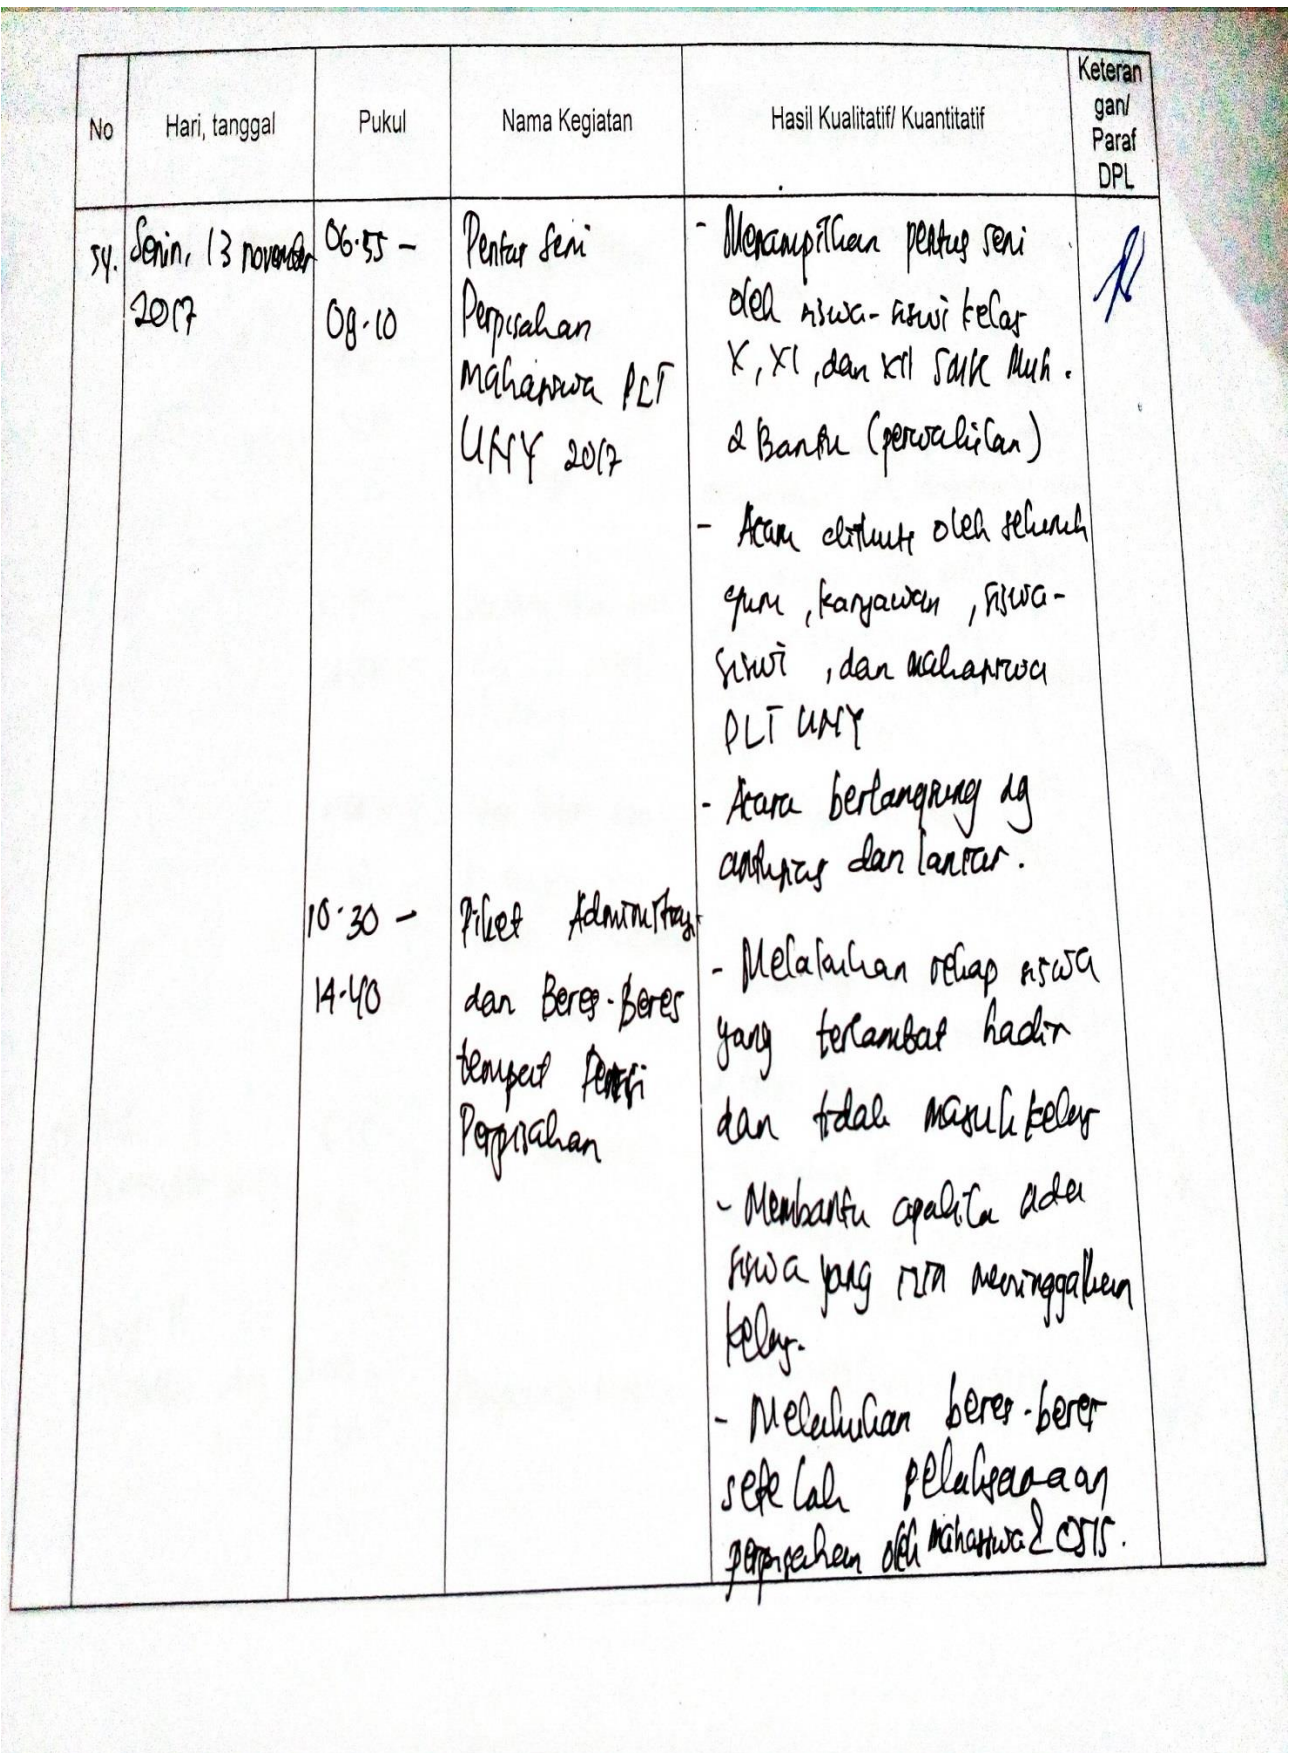 No
Hari, tanggal
Pukul
Nama Kegiatan
Hasil Kualitatif/ Kuantitatif
Keteran
gan/
Paraf
DPL
54.
Senin, 13 november
2017
06.55 -
08.10
Pentas Seni
Perpisahan
Mahasiswa PLT
UNY 2017
- Menampilkan pentas seni
oleh siswa-siswi kelas
X, XI, dan XII SMK Muh.
2 Bantu (perwakilan)
- Acara diikuti oleh seluruh
guru, karyawan, siswa-
siswi, dan mahasiswa
PLT UNY
- Acara berlangsung dg
antusias dan lancar.
10.30 -
14.40
Piket Administrasi
dan Beres-Beres
tempat Pensi
Perpisahan
- Melakukan rekap siswa
yang terlambat hadir
dan tidak masuk kelas
- Membantu apabila ada
siswa yang izin meninggalkan
kelas.
- Melakukan beres-beres
setelah pelaksanaan
perpisahan oleh Mahasiswa & OSIS.